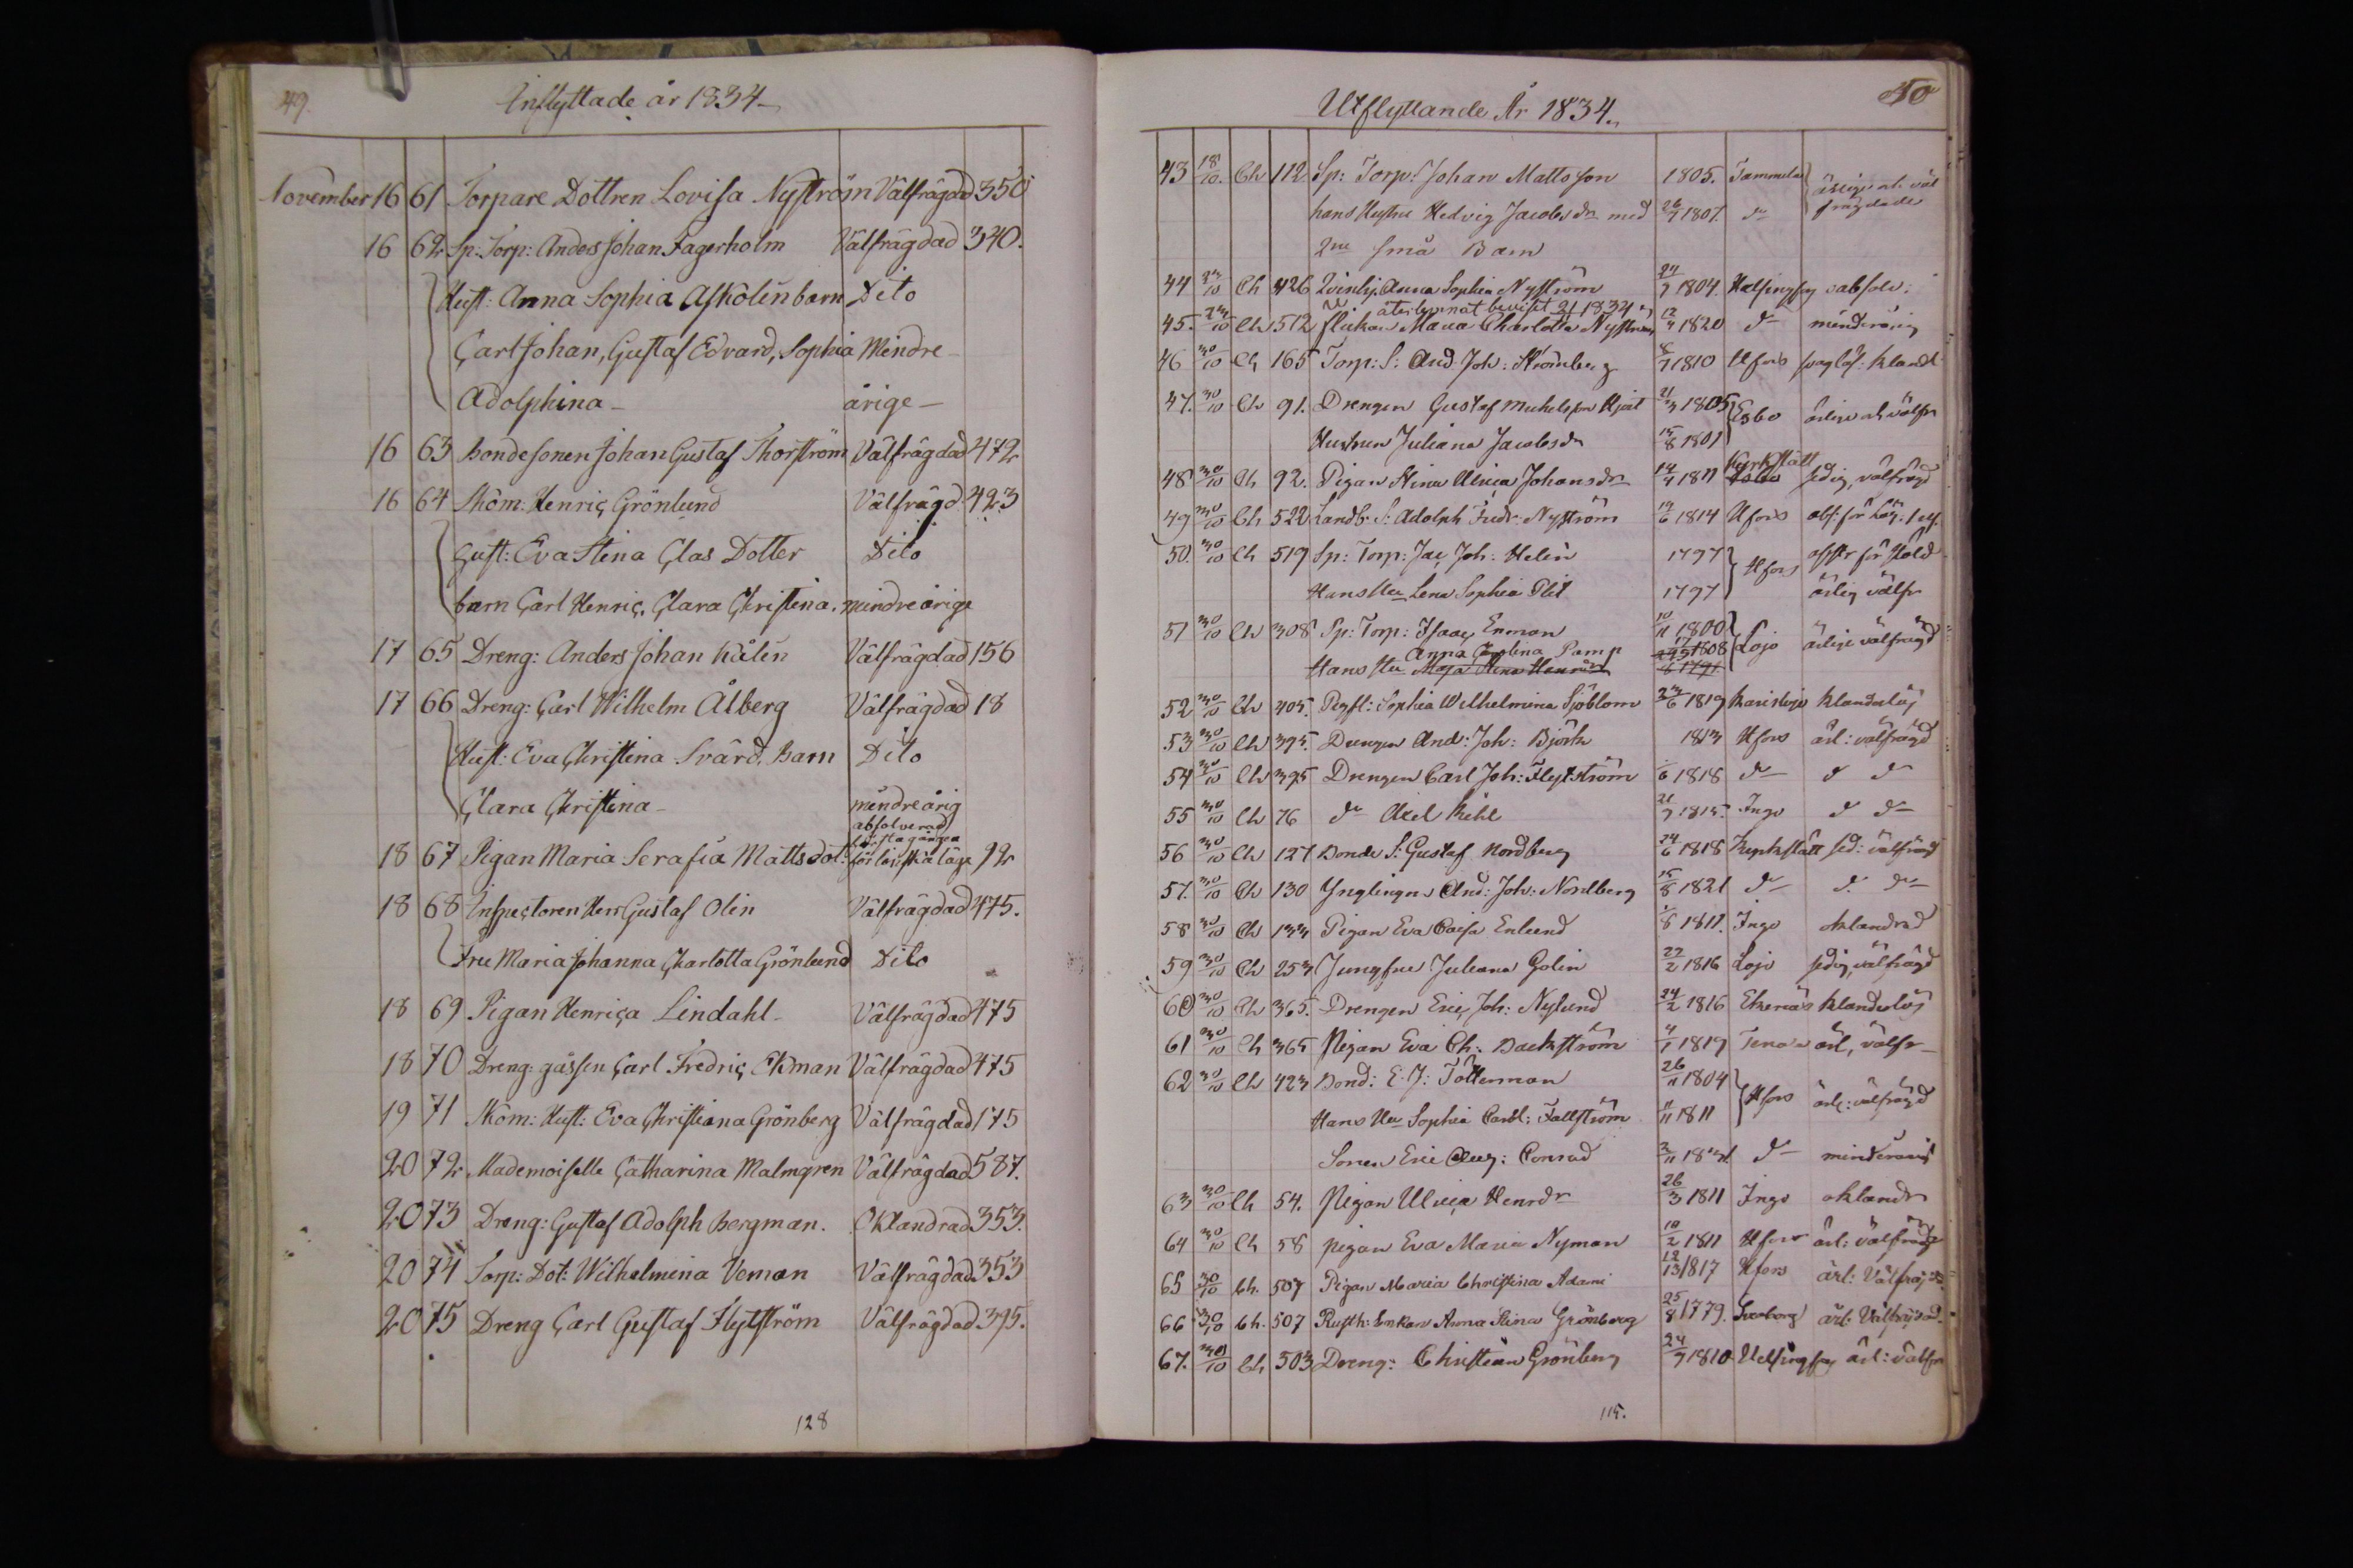 49.
Inflyttade år 1834
November 16 61 Torpare Dottren Lovisa Nyström Välfrägdad 350
16 62 Sp: Torp: Anders Johan Fagerholm Välfrägdad 340.
Hust: Anna Sophia Askolin barn Dito
Carl Johan, Gustaf Edvard, Sophia Mindre
Adolphina årige
16 63 Bondesonen Johan Gustaf Thorström Välfrägdad 472
16 64 Skom: Henric Grönlund Välfrägd: 423
Hust: Eva Stina Clas Dotter Dito
barn Carl Henric, Clara Christina. mindreårige
17 65 Dreng: Anders Johan Kålen Välfrägdad 156
17 66 Dreng: Carl Wilhelm Ålberg Välfrägdad 18
Hust: Eva Christina Svärd. Barn Dito
Clara Christina mindreårig
absolverad
första gången
18 67 Pigan Maria Serafia Matts dot: för lägersmål 92
18 68 Inspectoren Herr Gustaf Olin Välfrägdad 475.
Fru Maria Johanna Charlotta Grönlund Dito
18 69 Pigan Henrica Lindahl Välfrägdad 475
18 70 Dreng: gåssen Carl Fredric Ekman Välfrägdad 475
19 71 Skom: Hust: Eva Christiana Grönberg Välfrägdad 175
20 72 Mademoiselle Catharina Malmgren Välfrägdad 587.
20 73 Dreng: Gustaf Adolph Bergman. Oklandrad 353.
20 74 Torp: Dot: Wilhelmina Veman Välfrägdad 353
20 75 Dreng Carl Gustaf Flytström Välfrägdad 395.
128
50
Utflyttande År 1834.
43 18/10. Ch 112 Sp: Torp: Johan Mattsson 1805. Tammela ärlige och väl
hans Hustru Hedvig Jacobsdr med 26/7 1807. do frägdade
2ne små Barn
44 23/10 Ch 426 Anna Sophia Nyström 24/7 1804. Helsingfors absolv:
återlemnat beviset 1834
45. 23/10 Ch 512 flickan Maria Charlotta Nyström 1820 do minderårig
46 30/10 Ch 165 Torp: S: And. Joh: Strömberg 8/7 1810 Hfors
47. 30/10 Ch 91. Drengen Gustaf Michelsson Hjelt 21/3 1805 Esbo ärlige och välfr
Hustrun Juliana Jacobsdr 15/8 1801
Kyrkslätt
48 30/10 Ch 92. Pigan Stina Ulrica Johansdr 14/4 1811 Esbo sedig, välfrägd
49 30/10 Ch 522 Landb: S: Adolph Fredr: Nyström 14/6 1814 Hfors
50. 30/10 Ch 519 Sp: Torp: Jac Joh: Helin 1797 Hfors
Hans Hu Lena Sophia Plit 1797 ärlig välfr
51 30/10 Ch 308 Sp: Torp: Isaac Enman 10/11 1800 Lojo ärlige välfrägd
Anna Carolina Pamp 1808
Hans Hu Maja Stina Henrsdr
52 30/10 Ch 405. Pigfl: Sophia Wilhelmina Sjöblom 23/6 1819 Karislojo klanderlös
53 30/10 Ch 395. Drengen And: Joh: Björk 1813 Hfors ärl: välfrägd
54 30/10 Ch 395 Drengen Carl Joh: Flytström 1818 do do
55 30/10 Ch 76 do Axel Kihl 21/9 1815. Ingo do
56 30/10 Ch 127 Bonde S: Gustaf Nordberg 24/6 1818 Kyrkslätt sed: välfrägd
57. 30/10 Ch 130 Ynglingen And: Joh: Nordberg 15/8 1821 do do
58 30/10 Ch 133 Pigan Eva Caisa Enlund 1811. Ingo oklandrad
59 30/10 Ch 253 Jungfru Juliana Golin 22/2 1816 Lojo sedig, välfrägd
60 30/10 Ch 365. Drengen Eric Joh: Nylund 24/2 1816 Ekenäs klanderlös
61 30/10 Ch 365 Pigan Eva Ch: Backström 4/1 1819 Tenala ärl, välfr
62 30/10 Ch 423 Bond: E. J: Totterman 26/11 1804 Hfors ärl: välfrägd
Hans Hu Sophia Carol: Fallström 11/11 1811
Sonen Eric Aug: Conrad do minderårig
63 30/10 Ch 54. Pigan Ulrica Henrdr 26/3 1811 Ingo oklandr
64 30/10 Ch 58 pigan Eva Maria Nyman 10/2 1811 Hfors ärl: välfrägd
65 30/10 Ch. 507 Pigan Maria Christina Adami 1817 Hfors ärl: Välfrägd
66 30/10 Ch. 507 Rusth: Enkan Anna Stina Grönberg 25/8 1779. Sveaborg ärl: Välfrägdad.
67. 30/10 Ch 503 Dreng: Christian Grönberg 24/7 1810 Helsingfors ärl: välfr
115.